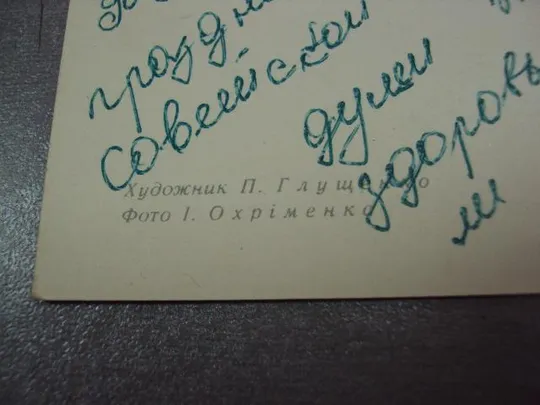 праздн
Советской
души
здоровь
Художник П. Глущенко
Фото І. Охріменка